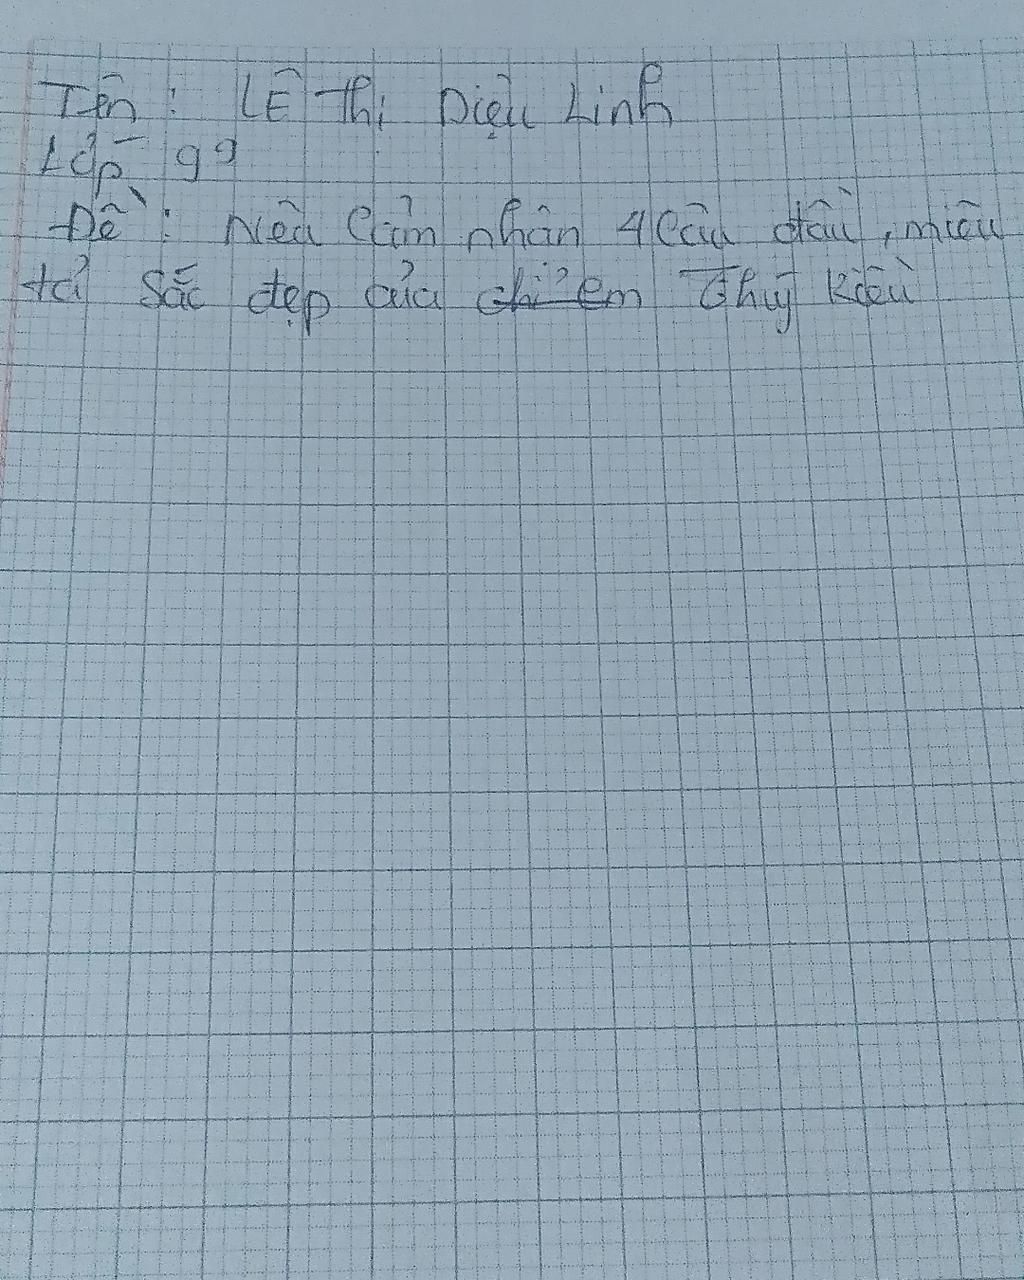 Tên : LÊ Thị Diệu Linh
Lớp 99
Đề : Nêu Cảm nhận 4 Câu đầu, miêu
tả sắc đẹp của chị em Thuý Kiều